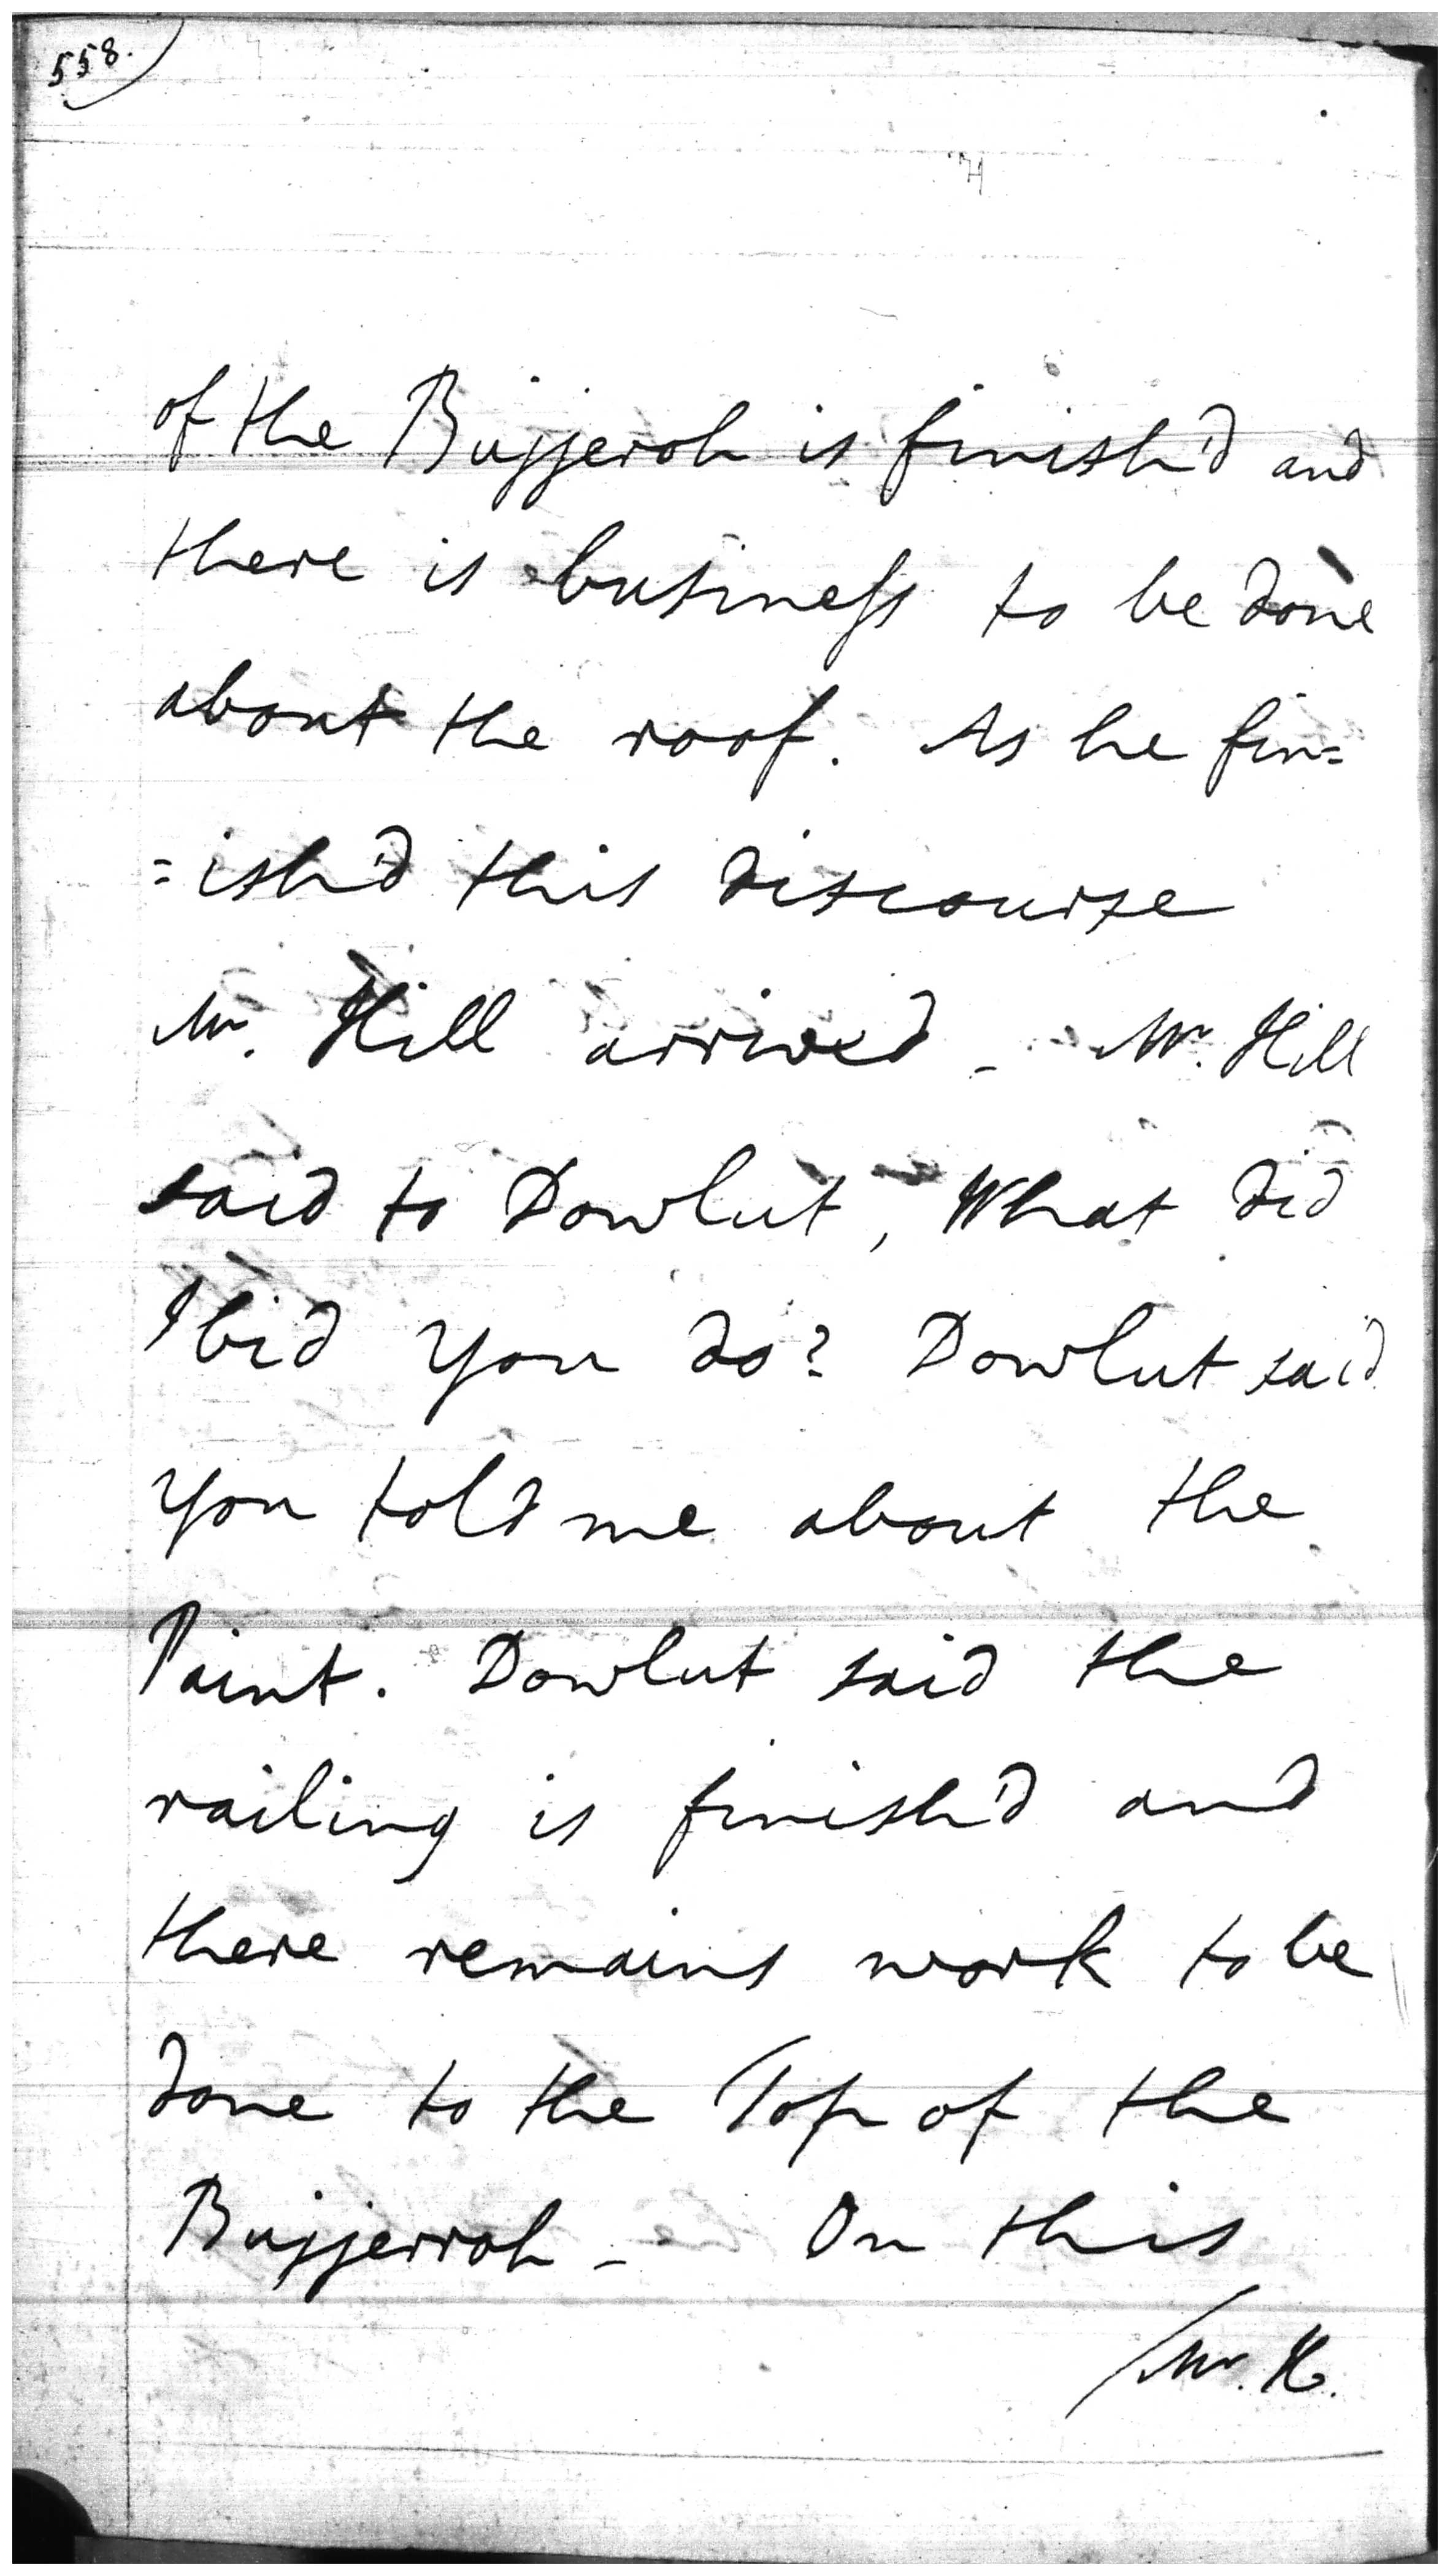 558.
of the Bujjeroh is finish'd and
there is business to be done
about the roof. As he fin=
=ish'd this discourse
Mr. Hill arrived - Mr. Hill
said to Dowlut, What did
I bid you do? Dowlut said
you told me about the
Paint. Dowlut said the
railing is finish'd and
there remains work to be
done to the Top of the
Bujjerroh - On this
/Mr. H.